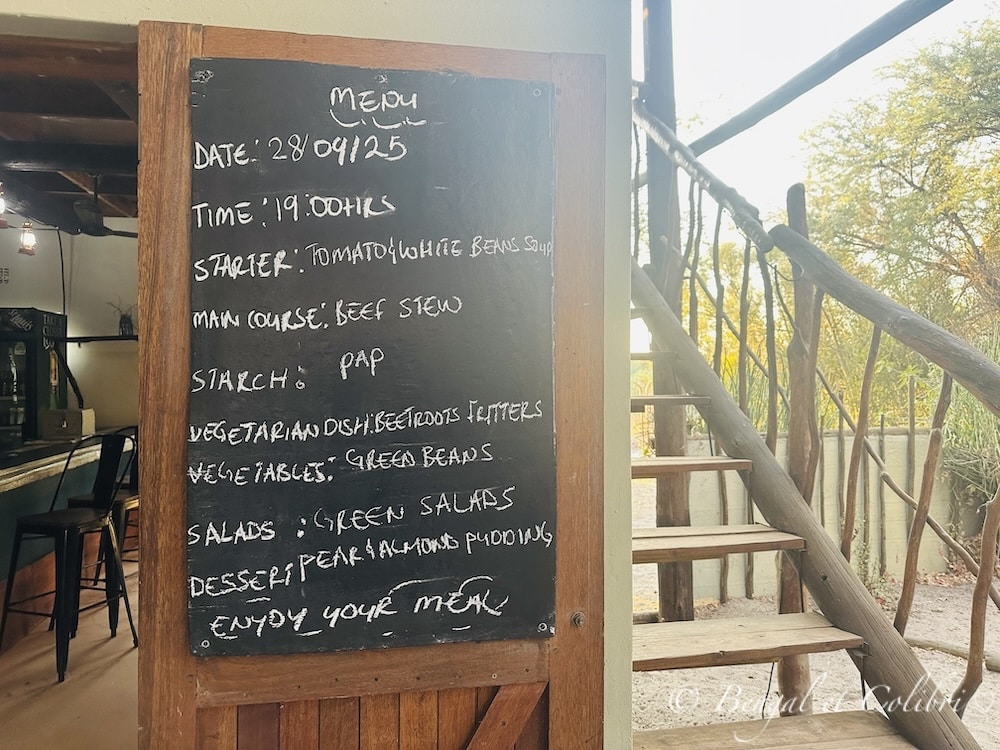 MENU
DATE: 28/09/25
TIME: 19:00HRS
STARTER: TOMATO & WHITE BEANS SOUP
MAIN COURSE: BEEF STEW
STARCH: PAP
VEGETARIAN DISH: BEETROOTS FRITTERS
VEGETABLES: GREEN BEANS
SALADS : GREEN SALADS
DESSERT PEAR & ALMOND PUDDING
ENJOY YOUR MEAL
© Bengal et Colibri